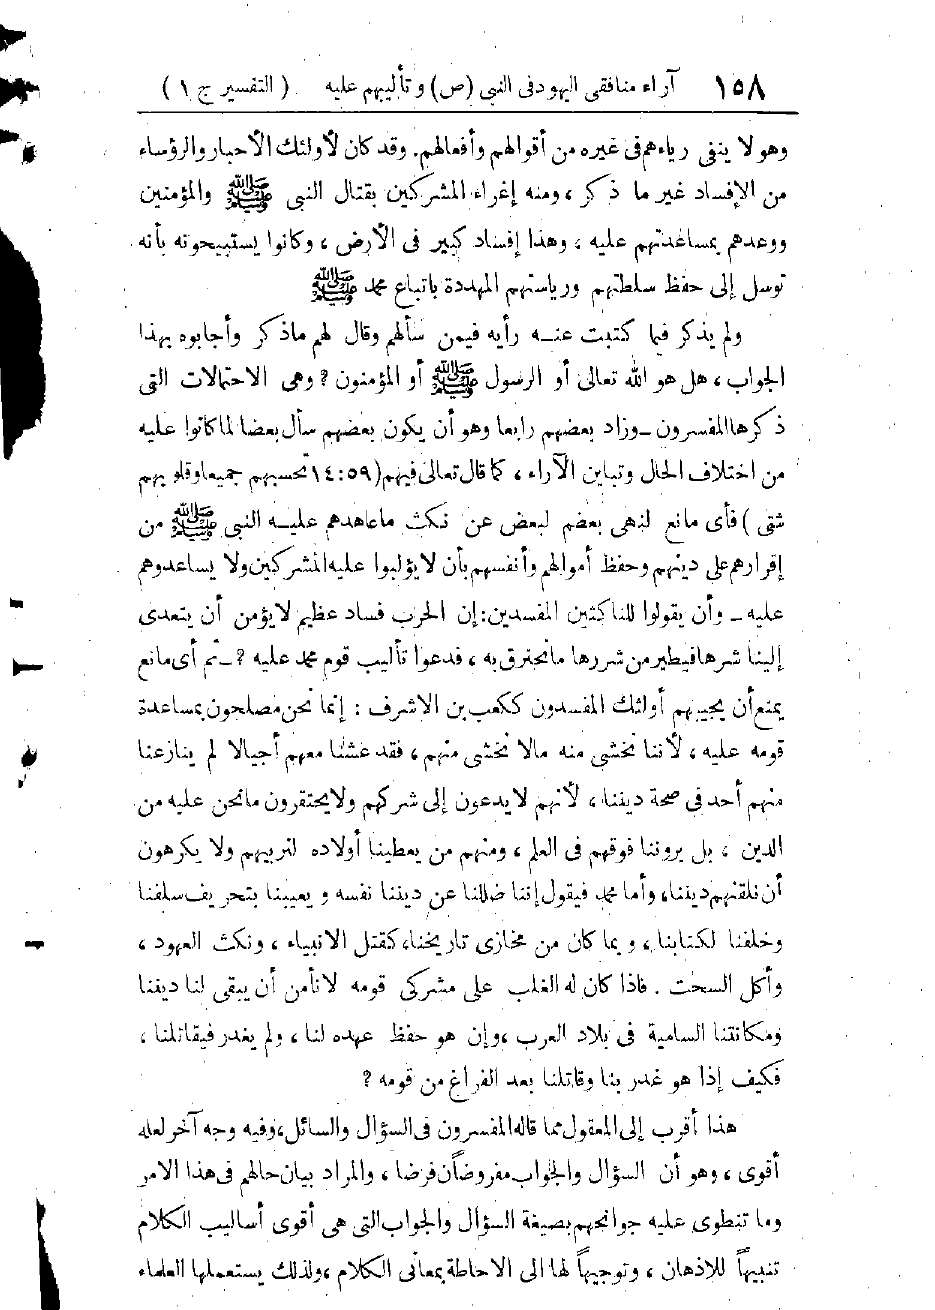 ١٥٨ آراء منافقى اليهود فى النبى (ص) وتأليبهم عليه ( التفسير ج ١ )
وهو لا ينفى رياءهم فى غيره من أقوالهم وأفعالهم. وقد كان لأولئك الأحبار والرؤساء
من الإفساد غير ما ذكر ، ومنه إغراء المشركين بقتال النبى ﷺ والمؤمنين
ووعدهم بمساعدتهم عليه ، وهذا إفساد كبير فى الأرض ، وكانوا يستبيحونه بأنه
توسل إلى حفظ سلطتهم ورياستهم المهددة باتباع محمد ﷺ
ولم يذكر فيما كتبت عنه رأيه فيمن سألهم وقال لهم ماذكر وأجابوه بهذا
الجواب ، هل هو الله تعالى أو الرسول ﷺ أو المؤمنون ؟ وهى الاحتمالات التى
ذكرها المفسرون ــ وزاد بعضهم رابعا وهو أن يكون بعضهم سأل بعضا لما كانوا عليه
من اختلاف الحال وتباين الآراء ، كما قال تعالى فيهم (٥٩:١٤ تحسبهم جميعا وقلوبهم
شتى ) فأى مانع لنهى بعضهم لبعض عن نكث ماعاهدهم عليه النبى ﷺ من
إقرارهم على دينهم وحفظ أموالهم وأنفسهم بأن لا يؤلبوا عليه المشركين ولا يساعدوهم
عليه ــ وأن يقولوا للناكثين المفسدين : إن الحرب فساد عظيم لا يؤمن أن يتعدى
إلينا شرها فيطير من شررها مانحترق به ، فدعوا تأليب قوم محمد عليه ؟ ــ ثم أى مانع
يمنع أن يجيبهم أولئك المفسدون ككعب بن الاشرف : إنما نحن مصلحون بمساعدة
قومه عليه ، لأننا نخشى منه مالا نخشى منهم ، فقد عشنا معهم أجيالا لم ينازعنا
منهم أحد فى صحة ديننا ، لأنهم لا يدعون إلى شركهم ولا يحتقرون مانحن عليه من
الدين ، بل يروننا فوقهم فى العلم ، ومنهم من يعطينا أولاده لنربيهم ولا يكرهون
أن نلقنهم ديننا ، وأما محمد فيقول إننا ضللنا عن ديننا نفسه ويعيبنا بتحريف سلفنا
وخلفنا لكتابنا ، وبما كان من مخازى تاريخنا ، كقتل الانبياء ، ونكث العهود ،
وأكل السحت . فاذا كان له الغلب على مشركى قومه لا نأمن أن يبقى لنا ديننا
ومكانتنا السامية فى بلاد العرب ، وإن هو حفظ عهده لنا ، ولم يغدر فيقاتلنا ،
فكيف إذا هو غدر بنا وقاتلنا بعد الفراغ من قومه ؟
هذا أقرب إلى المعقول مما قاله المفسرون فى السؤال والسائل ، وفيه وجه آخر لعله
أقوى ، وهو أن السؤال والجواب مفروضان فرضا ، والمراد بيان حالهم فى هذا الامر
وما تنطوى عليه جوانحهم بصيغة السؤال والجواب التى هى أقوى أساليب الكلام
تنبيهاً للاذهان ، وتوجيهاً لها الى الاحاطة بمعانى الكلام ، ولذلك يستعملها العلماء